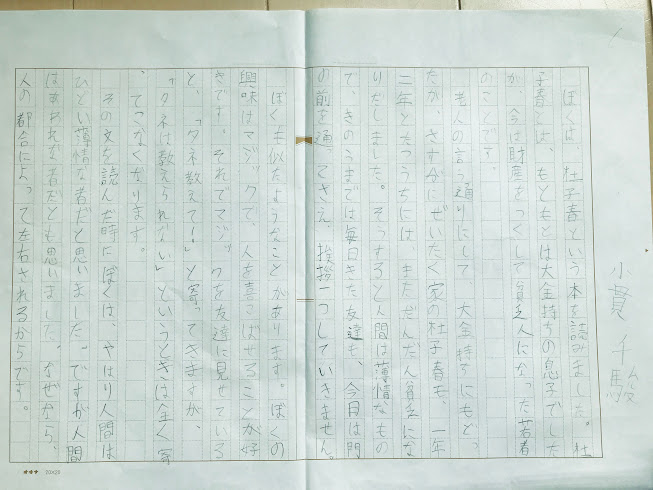 小貫 千駿
ぼくは、杜子春という本を読みました。杜
子春とは、もともとは大金持ちの息子でした
が、今は財産をつくして貧乏人になった若者
のことです。
老人の言う通りにして、大金持ちにもどっ
たが、さすがにぜいたく家の杜子春も、一年
二年とたつうちには、まただんだん貧乏にな
りだしました。そうすると人間は薄情なもの
で、きのうまでは毎日きた友達も、今日は門
の前を通ってさえ、挨拶一つしていきません。
ぼくも似たようなことがあります。ぼくの
興味はマジックで、人を喜こばせることが好
きです。それでマジックを友達に見せている
と、「タネ教えて!」と寄ってきますが、
「タネは教えられない」というときは全く寄
ってこなくなります。
その文を読んだ時にぼくは、やはり人間は
ひどい薄情な者だと思いました。ですが人間
はあわれな者だとも思いました。なぜなら、
人の都合によって左右されるからです。
20X20